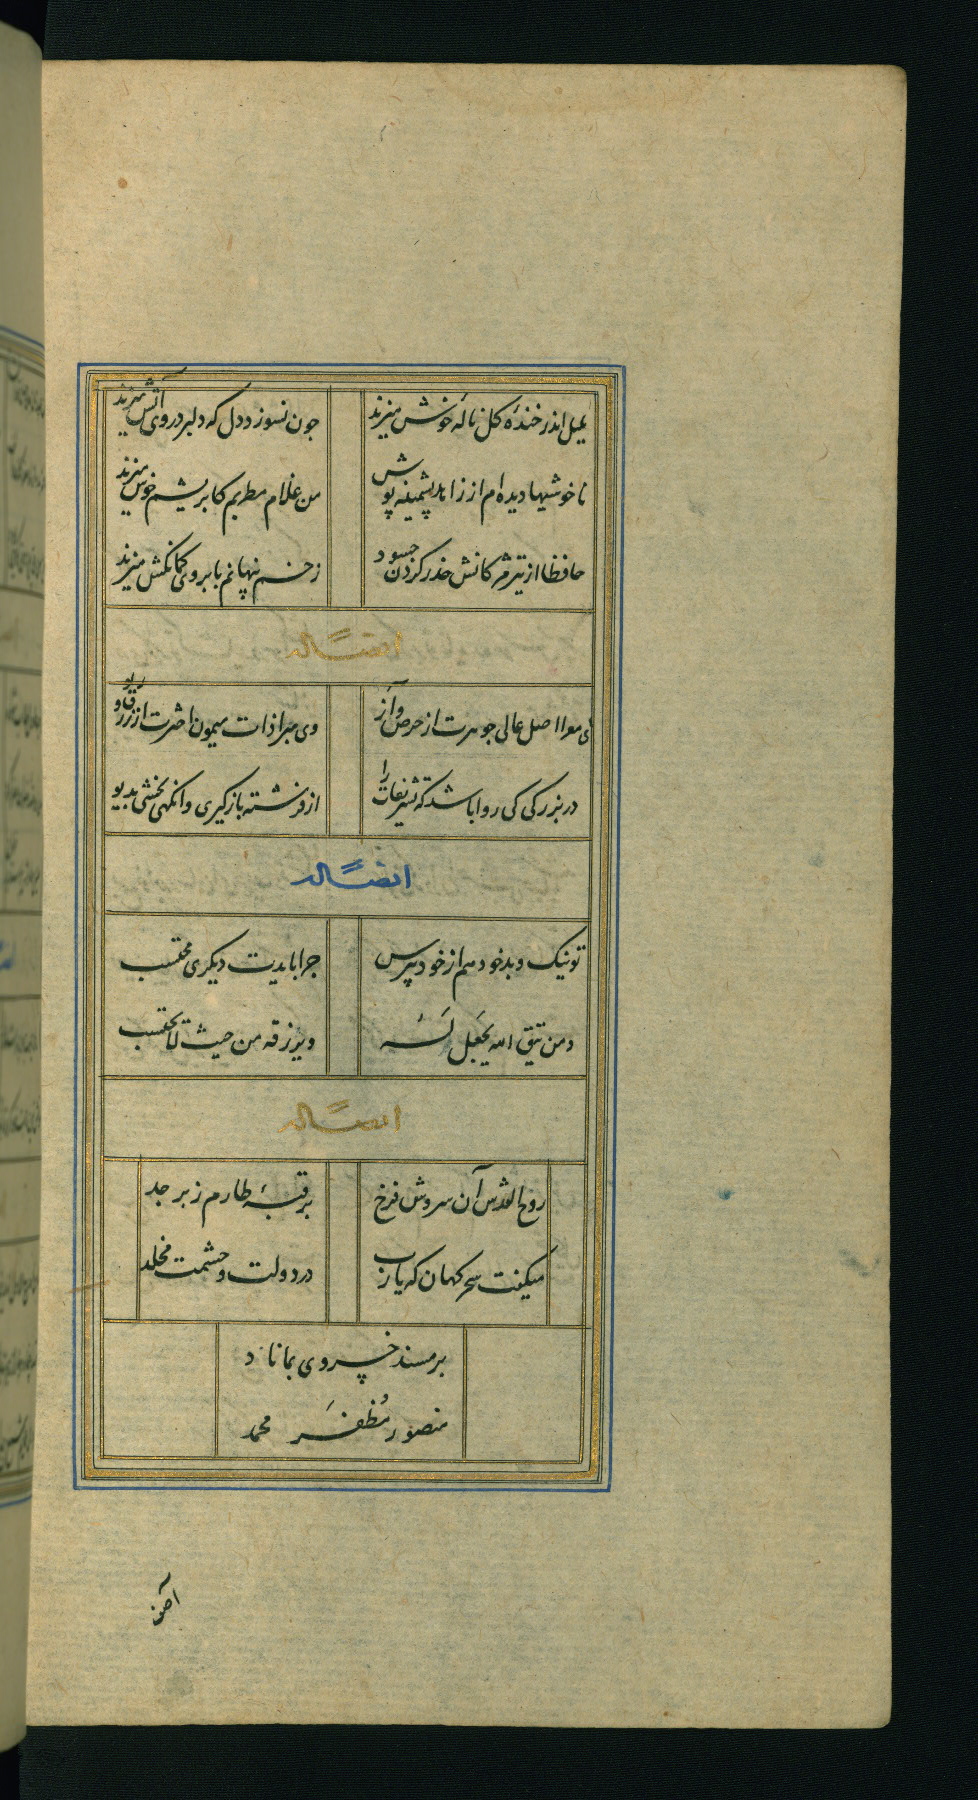 بلبل اندر خندهٔ کل ناله خوش میزند
جون نسوزد دل که دلبر در وی آتش میزند
ناخوشیها دیده‌ام از زاهد پشمینه پوش
من غلام مطربم کابریشم خوش میزند
حافظا از تیر مژکانش حذر کردن جسود
زخم نهانم بابروی کمانکش میزند
ایضاً له
ای معرا اصل عالی جوهرت از حرص و آز
وی مبرا ذات میمون اخترت از زرق و ریو
در بزرکی کی روا باشد که تشریفات را
از فرشته بازکیری وانکهی بخشی بدیو
ایضاً له
تو نیک و بد خود هم از خود بپرس
جرا بایدت دیکری محتسب
ومن یتق الله یجعل له
ویرزقه من حیث لا یحتسب
ایضاً له
روح القدس آن سروش فرخ
بر قبهٔ طارم زبرجد
میکفت سحرکهان که یارب
در دولت و حشمت مخلد
بر مسند خسروی بماناد
منصور مظفر محمد
آصف